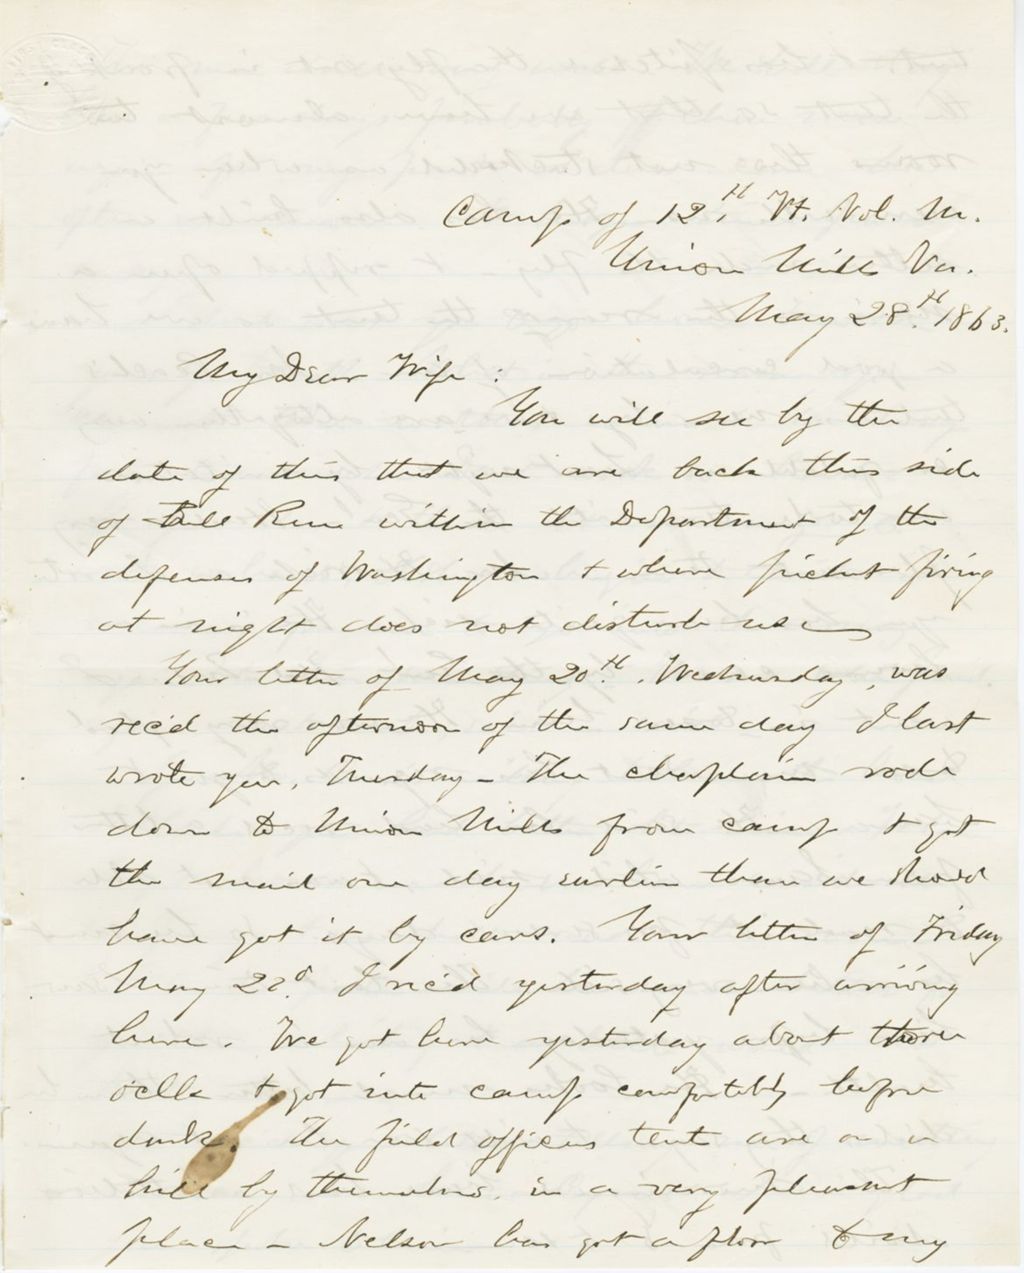 Camp of 12th Vt. Vol. M.
Union Mills Va.
May 28th 1863.
My Dear Wife:
You will see by the
date of this that we are back this side
of Bull Run within the Department of the
defenses of Washington & where picket firing
at night does not disturb us
Your letter of May 20th, Wednesday, was
rec'd the afternoon of the same day I last
wrote you, Tuesday - The chaplain rode
down to Union Mills from camp & got
the mail one day earlier than we should
have got it by cars. Your letter of Friday
May 22d I rec'd yesterday after arriving
here. We got here yesterday about three
oclk & got into camp comfortably before
dark. The field officers tent are on a
hill by themselves, in a very pleasant
place - Nelson has got a floor to my